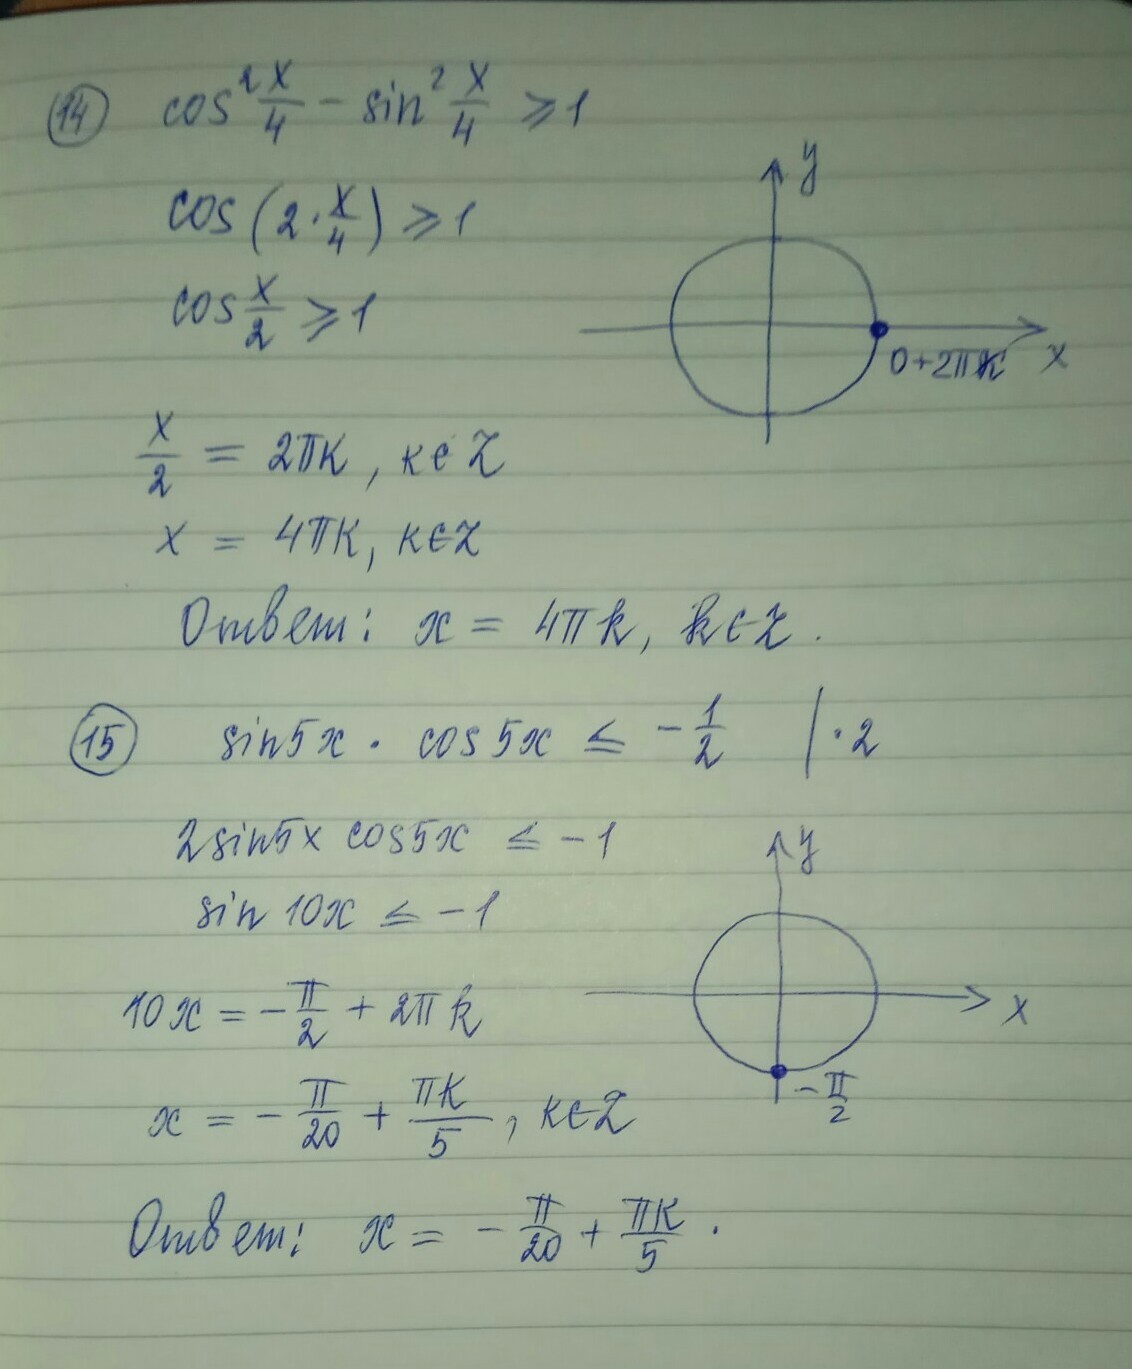 14 cos² x/4 - sin² x/4 ⩾ 1
cos (2 · x/4) ⩾ 1
cos x/2 ⩾ 1
y
0+2πk
x
x/2 = 2πk, k∈Z
x = 4πk, k∈Z
Ответ: x = 4πk, k∈Z.
15 sin5x · cos5x ≤ -1/2 | ·2
2sin5x cos5x ≤ -1
sin 10x ≤ -1
y
x
-π/2
10x = -π/2 + 2πk
x = -π/20 + πk/5, k∈Z
Ответ: x = -π/20 + πk/5.